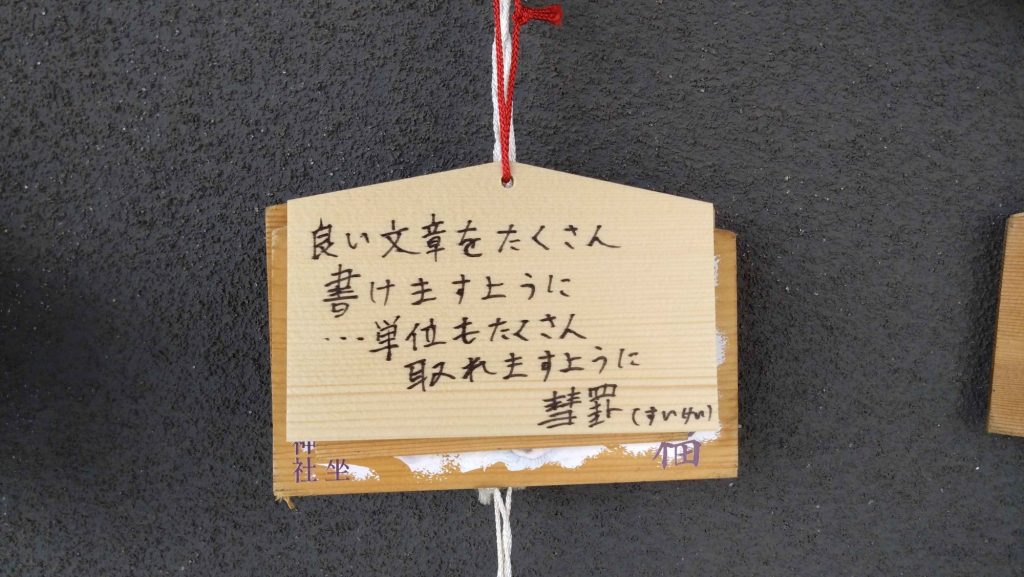 良い文章をたくさん
書けますように
…単位もたくさん
取れますように
彗罫(すいけい)
神社
坐
福